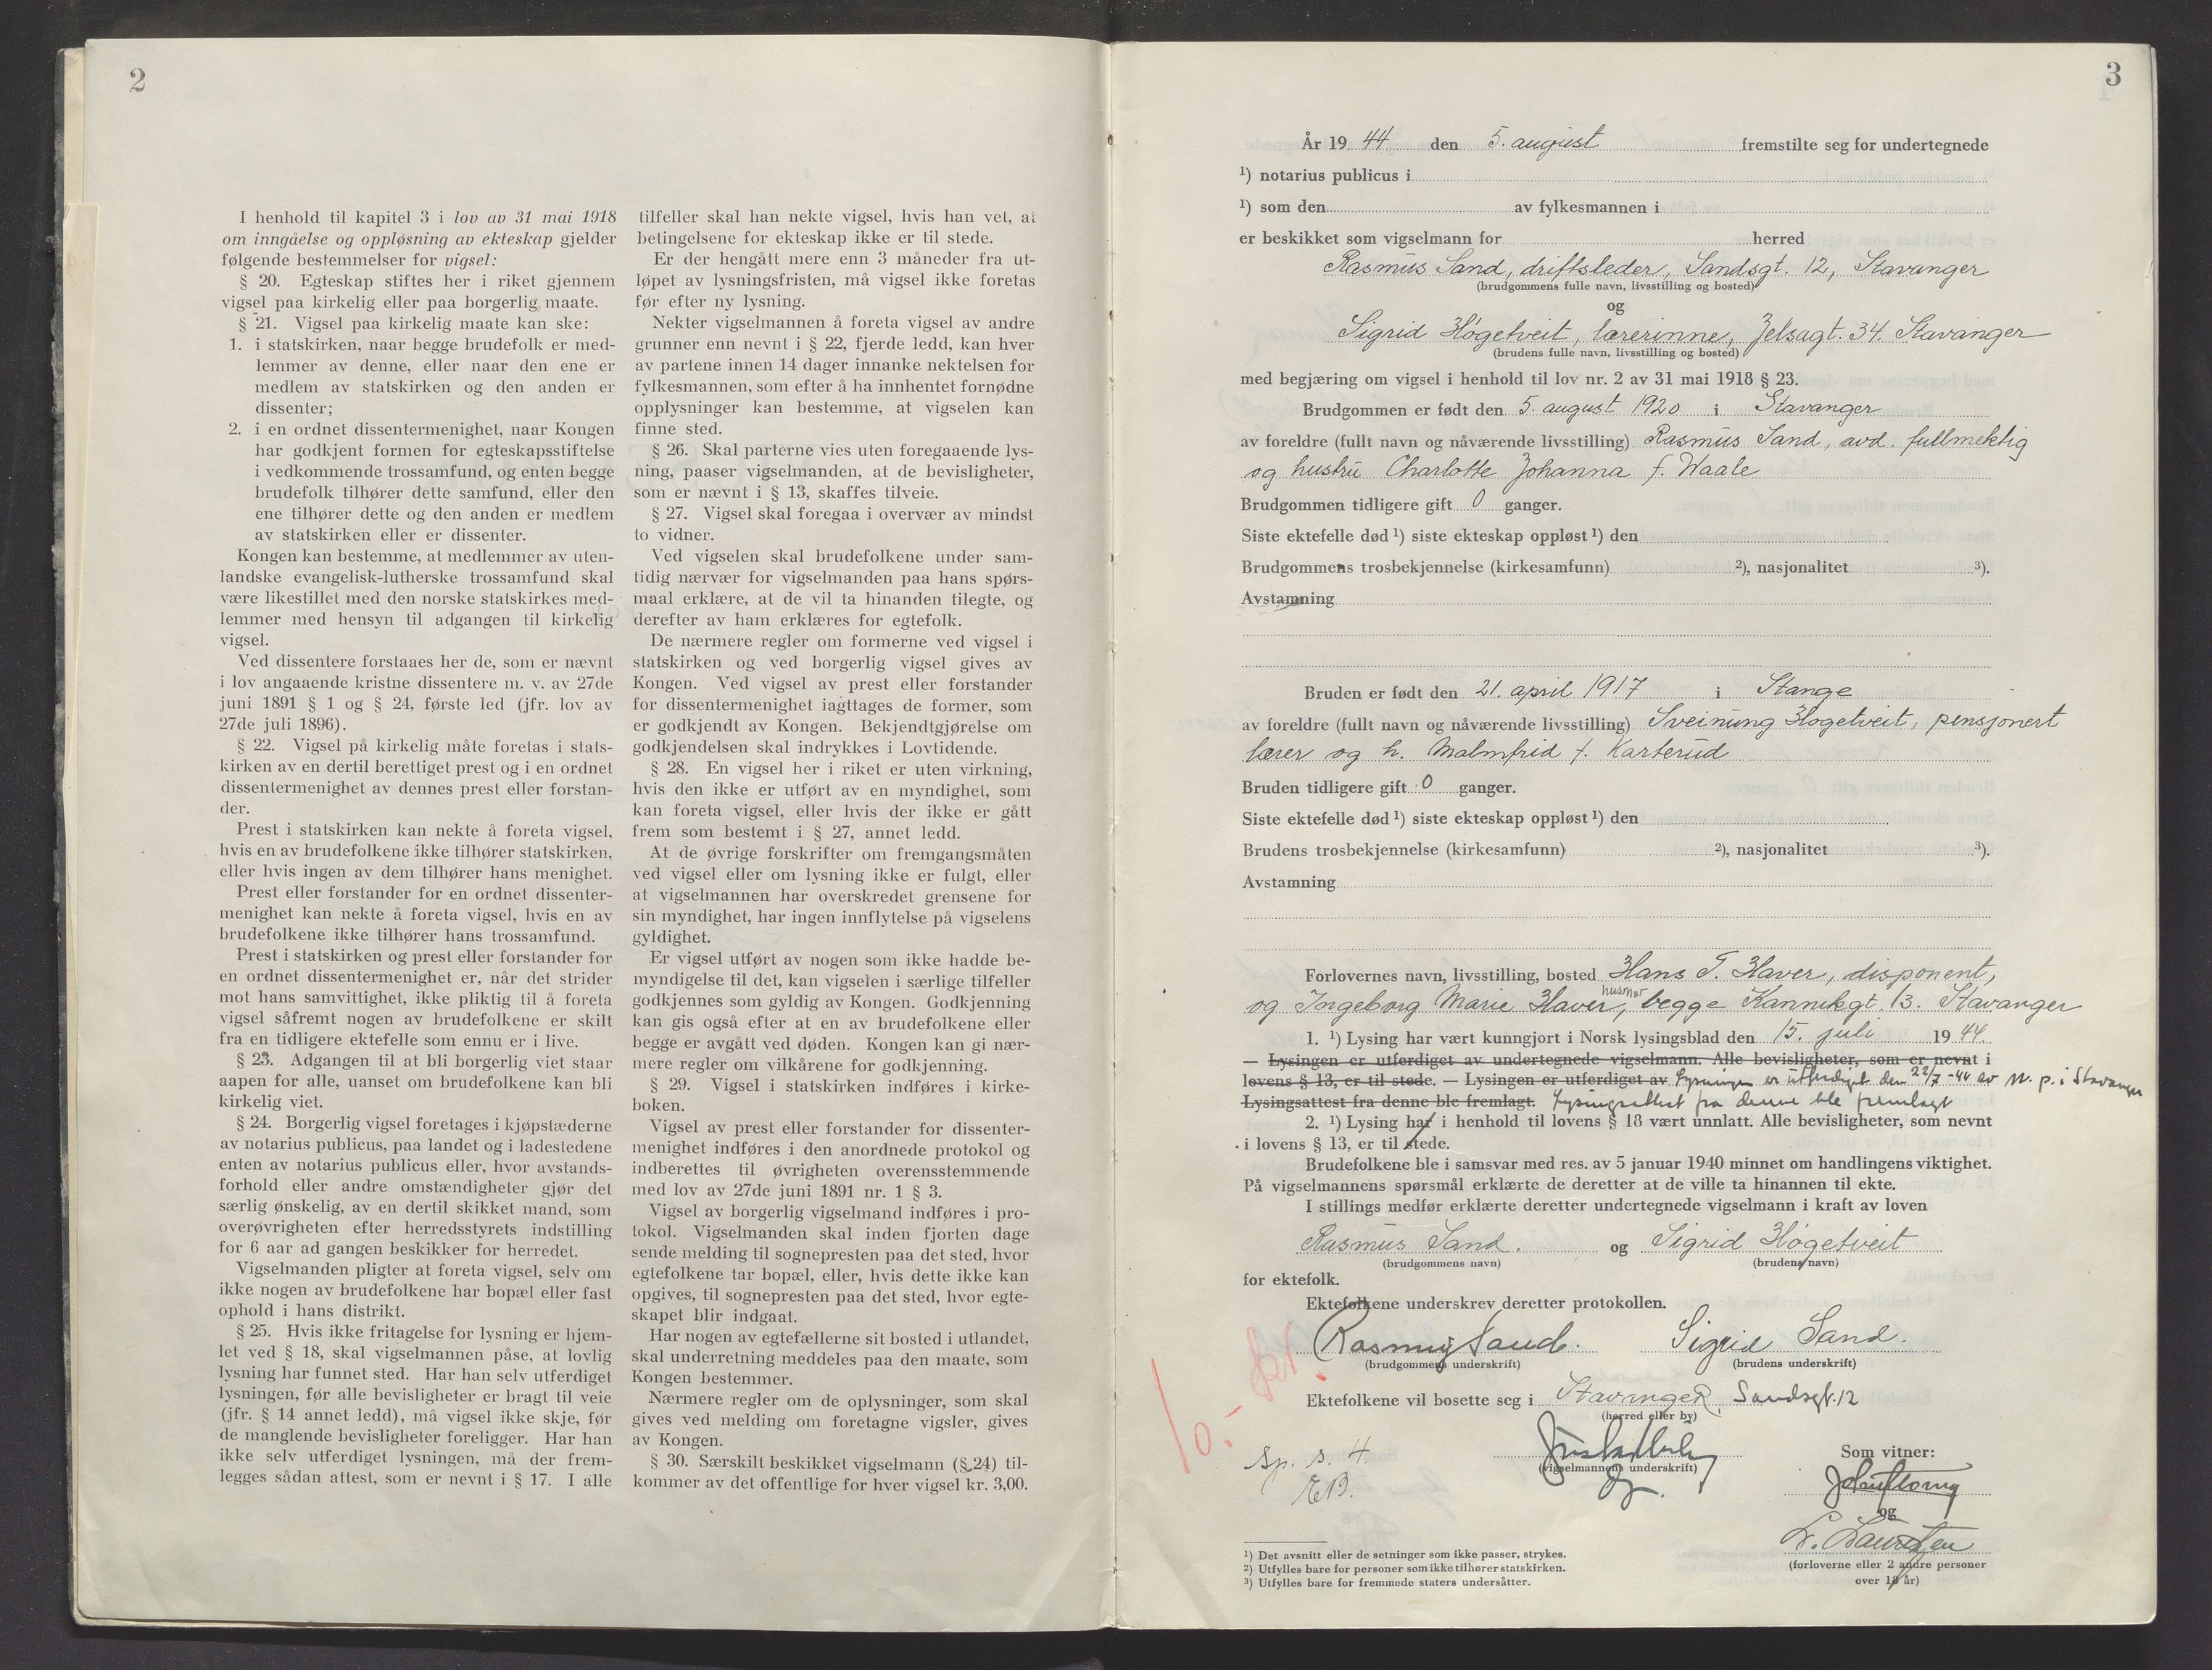 2
I henhold til kapitel 3 i lov av 31 mai 1918
om inngåelse og oppløsning av ekteskap gjelder
følgende bestemmelser for vigsel:
§ 20. Egteskap stiftes her i riket gjennem
vigsel paa kirkelig eller paa borgerlig maate.
§ 21. Vigsel paa kirkelig maate kan ske:
1. i statskirken, naar begge brudefolk er med-
lemmer av denne, eller naar den ene er
medlem av statskirken og den anden er
dissenter;
2. i en ordnet dissentermenighet, naar Kongen
har godkjent formen for egteskapsstiftelse
i vedkommende trossamfund, og enten begge
brudefolk tilhører dette samfund, eller den
ene tilhører dette og den anden er medlem
av statskirken eller er dissenter.
Kongen kan bestemme, at medlemmer av uten-
landske evangelisk-lutherske trossamfund skal
være likestillet med den norske statskirkes med-
lemmer med hensyn til adgangen til kirkelig
vigsel.
Ved dissentere forstaaes her de, som er nævnt
i lov angaaende kristne dissentere m. v. av 27de
juni 1891 § 1 og § 24, første led (jfr. lov av
27de juli 1896).
§ 22. Vigsel på kirkelig måte foretas i stats-
kirken av en dertil berettiget prest og i en ordnet
dissentermenighet av dennes prest eller forstan-
der.
Prest i statskirken kan nekte å foreta vigsel,
hvis en av brudefolkene ikke tilhører statskirken,
eller hvis ingen av dem tilhører hans menighet.
Prest eller forstander for en ordnet dissenter-
menighet kan nekte å foreta vigsel, hvis en av
brudefolkene ikke tilhører hans trossamfund.
Prest i statskirken og prest eller forstander for
en ordnet dissentermenighet er, når det strider
mot hans samvittighet, ikke pliktig til å foreta
vigsel såfremt nogen av brudefolkene er skilt
fra en tidligere ektefelle som ennu er i live.
§ 23. Adgangen til at bli borgerlig viet staar
aapen for alle, uanset om brudefolkene kan bli
kirkelig viet.
§ 24. Borgerlig vigsel foretages i kjøpstæderne
av notarius publicus, paa landet og i ladestedene
enten av notarius publicus eller, hvor avstands-
forhold eller andre omstændigheter gjør det
særlig ønskelig, av en dertil skikket mand, som
overøvrigheten efter herredsstyrets indstilling
for 6 aar ad gangen beskikker for herredet.
Vigselmanden pligter at foreta vigsel, selv om
ikke nogen av brudefolkene har bopæl eller fast
ophold i hans distrikt.
§ 25. Hvis ikke fritagelse for lysning er hjem-
let ved § 18, skal vigselmannen påse, at lovlig
lysning har funnet sted. Har han selv utferdiget
lysningen, før alle bevisligheter er bragt til veie
(jfr. § 14 annet ledd), må vigsel ikke skje, før
de manglende bevisligheter foreligger. Har han
ikke selv utferdiget lysningen, må der frem-
legges sådan attest, som er nevnt i § 17. I alle
tilfeller skal han nekte vigsel, hvis han vet, at
betingelsene for ekteskap ikke er til stede.
Er der hengått mere enn 3 måneder fra ut-
løpet av lysningsfristen, må vigsel ikke foretas
før efter ny lysning.
Nekter vigselmannen å foreta vigsel av andre
grunner enn nevnt i § 22, fjerde ledd, kan hver
av partene innen 14 dager innanke nektelsen for
fylkesmannen, som efter å ha innhentet fornødne
opplysninger kan bestemme, at vigselen kan
finne sted.
§ 26. Skal parterne vies uten foregaaende lys-
ning, paaser vigselmanden, at de bevisligheter,
som er nævnt i § 13, skaffes tilveie.
§ 27. Vigsel skal foregaa i overvær av mindst
to vidner.
Ved vigselen skal brudefolkene under sam-
tidig nærvær for vigselmanden paa hans spørs-
maal erklære, at de vil ta hinanden tilegte, og
derefter av ham erklæres for egtefolk.
De nærmere regler om formerne ved vigsel i
statskirken og ved borgerlig vigsel gives av
Kongen. Ved vigsel av prest eller forstander
for dissentermenighet iagttages de former, som
er godkjendt av Kongen. Bekjendtgjørelse om
godkjendelsen skal indrykkes i Lovtidende.
§ 28. En vigsel her i riket er uten virkning,
hvis den ikke er utført av en myndighet, som
kan foreta vigsel, eller hvis der ikke er gått
frem som bestemt i § 27, annet ledd.
At de øvrige forskrifter om fremgangsmåten
ved vigsel eller om lysning ikke er fulgt, eller
at vigselmannen har overskredet grensene for
sin myndighet, har ingen innflytelse på vigselens
gyldighet.
Er vigsel utført av nogen som ikke hadde be-
myndigelse til det, kan vigselen i særlige tilfeller
godkjennes som gyldig av Kongen. Godkjenning
kan gis også efter at en av brudefolkene eller
begge er avgått ved døden. Kongen kan gi nær-
mere regler om vilkårene for godkjenning.
§ 29. Vigsel i statskirken indføres i kirke-
boken.
Vigsel av prest eller forstander for dissenter-
menighet indføres i den anordnede protokol og
indberettes til øvrigheten overensstemmende
med lov av 27de juni 1891 nr. 1 § 3.
Vigsel av borgerlig vigselmand indføres i pro-
tokol. Vigselmanden skal inden fjorten dage
sende melding til sognepresten paa det sted, hvor
egtefolkene tar bopæl, eller, hvis dette ikke kan
opgives, til sognepresten paa det sted, hvor egte-
skapet blir indgaat.
Har nogen av egtefællerne sit bosted i utlandet,
skal underretning meddeles paa den maate, som
Kongen bestemmer.
Nærmere regler om de oplysninger, som skal
gives ved melding om foretagne vigsler, gives
av Kongen.
§ 30. Særskilt beskikket vigselmann (§ 24) til-
kommer av det offentlige for hver vigsel kr. 3,00.
3
År 19 44 den 5. august fremstilte seg for undertegnede
1) notarius publicus i
1) som den av fylkesmannen i
er beskikket som vigselmann for herred
Rasmus Sand, driftsleder, Sandsgt. 12, Stavanger
(brudgommens fulle navn, livsstilling og bosted)
og
Sigrid Högetveit, lærerinne, Jelsagt. 34. Stavanger
(brudens fulle navn, livsstilling og bosted)
med begjæring om vigsel i henhold til lov nr. 2 av 31 mai 1918 § 23.
Brudgommen er født den 5. august 1920 i Stavanger
av foreldre (fullt navn og nåværende livsstilling) Rasmus Sand, avd. fullmektig
og hustru Charlotte Johanna f. Waale
Brudgommen tidligere gift 0 ganger.
Siste ektefelle død 1) siste ekteskap oppløst 1) den
Brudgommens trosbekjennelse (kirkesamfunn) 2), nasjonalitet 3).
Avstamning
Bruden er født den 21. april 1917 i Stange
av foreldre (fullt navn og nåværende livsstilling) Sveinung Hogetveit, pensjonert
lærer og h. Malmfrid f. Karterud
Bruden tidligere gift 0 ganger.
Siste ektefelle død 1) siste ekteskap oppløst 1) den
Brudens trosbekjennelse (kirkesamfunn) 2), nasjonalitet 3).
Avstamning
Forlovernes navn, livsstilling, bosted Hans T. Haver, disponent,
husmor
og Ingeborg Marie Haver, begge Kannikgt. 13. Stavanger
1. 1) Lysing har vært kunngjort i Norsk lysingsblad den 15. juli 1944.
— Lysingen er utferdiget av undertegnede vigselmann. Alle bevisligheter, som er nevnt i
lovens § 13, er til stede. — Lysingen er utferdiget av Lysningen er utferdiget den 22/7-44 av N. p. i Stavanger
Lysingsattest fra denne ble fremlagt. Lysingsattest fra denne ble fremlagt
2. 1) Lysing har i henhold til lovens § 18 vært unnlatt. Alle bevisligheter, som nevnt
i lovens § 13, er til stede.
Brudefolkene ble i samsvar med res. av 5 januar 1940 minnet om handlingens viktighet.
På vigselmannens spørsmål erklærte de deretter at de ville ta hinannen til ekte.
I stillings medfør erklærte deretter undertegnede vigselmann i kraft av loven
Rasmus Sand. og Sigrid Högetveit
(brudgommens navn) (brudens navn)
for ektefolk.
Ektefolkene underskrev deretter protokollen.
Rasmus Sand. Sigrid Sand.
(brudgommens underskrift) (brudens underskrift)
Ektefolkene vil bosette seg i Stavanger, Sandsgt. 12
(herred eller by)
10.-
Sp. s. 4
EB.
(vigselmannens underskrift)
Som vitner:
og
L. Lauritzen
(forloverne eller 2 andre personer
over 18 år)
1) Det avsnitt eller de setninger som ikke passer, strykes.
2) Utfylles bare for personer som ikke tilhører statskirken.
3) Utfylles bare for fremmede staters undersåtter.